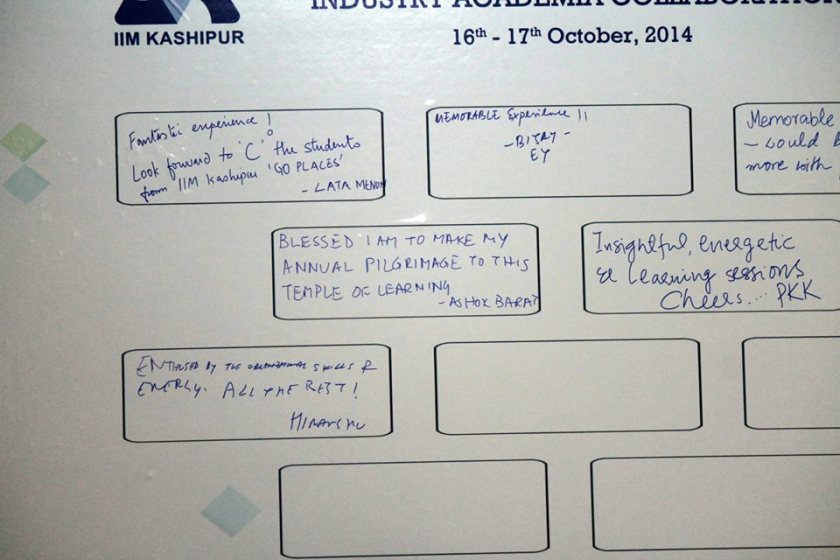 INDUSTRY ACADEMIA COLLABORATION
IIM KASHIPUR
16th - 17th October, 2014
Fantastic experience !
Look forward to 'C' the students
from IIM Kashipur 'GO PLACES'
- LATA MENON
MEMORABLE Experience !!
EY
Memorable
- could
more with
BLESSED I AM TO MAKE MY
ANNUAL PILGRIMAGE TO THIS
TEMPLE OF LEARNING
- ASHOK BARAT
Insightful, energetic
& Learning sessions
Cheers.... PKK
ENTHUSED BY THE ORGANIZATIONAL SKILLS &
ENERGY. ALL THE BEST !
HIMANSHU